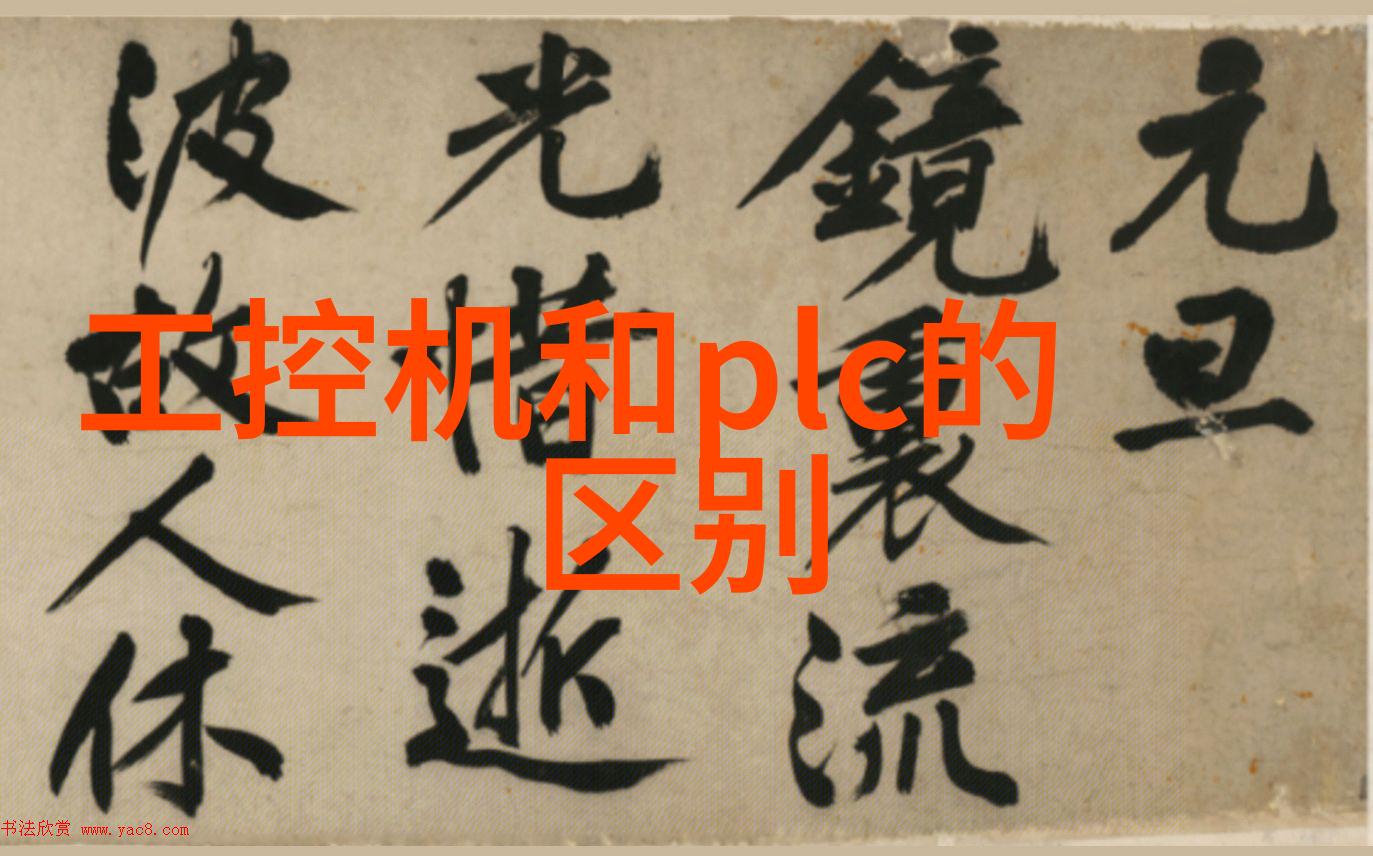 元旦
鏡裏流
光惜逝
波故人休
工控机和plc的
区别
书法欣赏 www.yac8.com